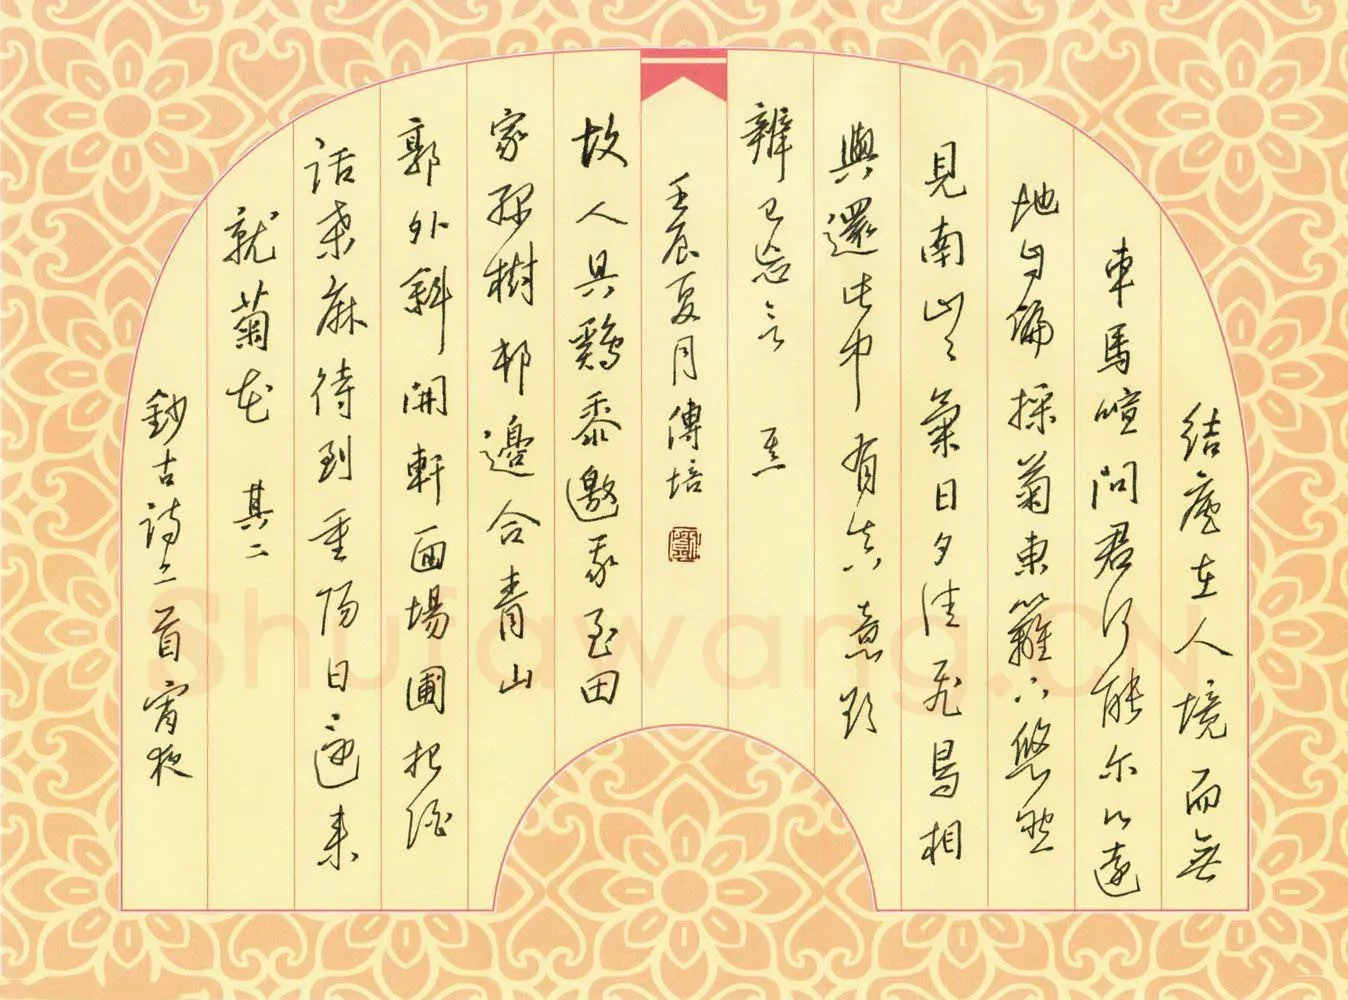 結廬在人境而無
車馬喧問君何能尔心遠
地自偏採菊東籬下悠然
見南山〻氣日夕佳飛鳥相
與還此中有真意欲
辨已忘言 其一
壬辰夏月傳培
故人具鷄黍邀我至田
家綠樹邨邊合青山
郭外斜開軒面場圃把酒
話桑麻待到重陽日還来
就菊花 其二
鈔古詩二首宵夜
Shufawang.CN